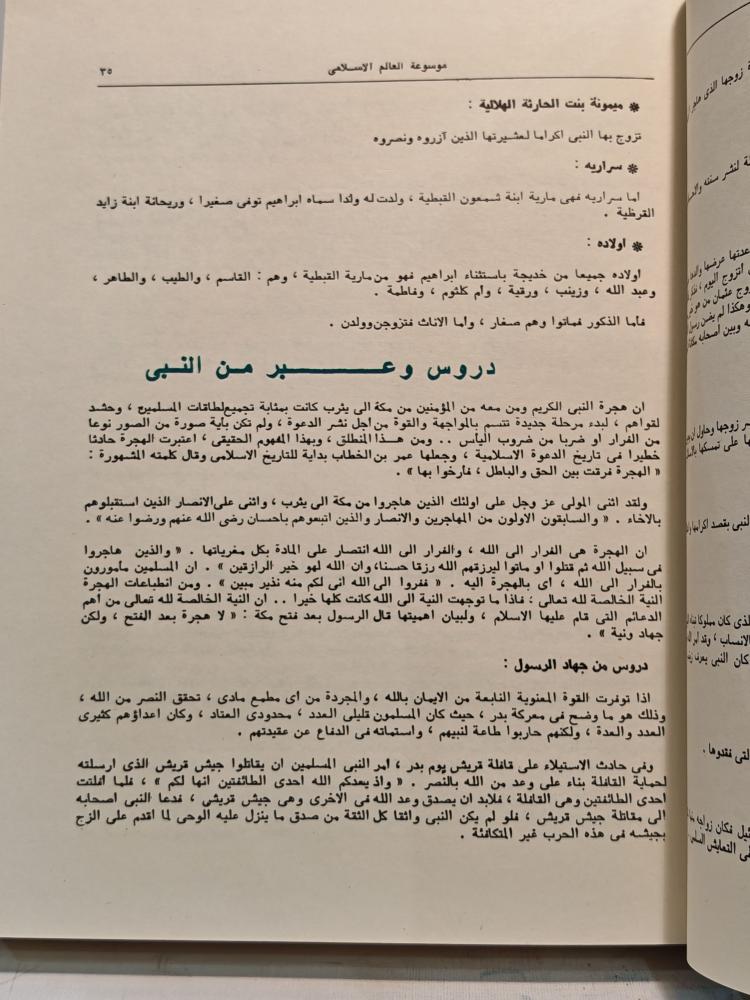 موسوعة العالم الاسلامى
٣٥
* ميمونة بنت الحارثة الهلالية :
تزوج بها النبى اكراما لعشيرتها الذين آزروه ونصروه
* سراريه :
اما سراريه فهى مارية ابنة شمعون القبطية ، ولدت له ولدا سماه ابراهيم توفى صغيرا ، وريحانة ابنة زايد
القرظية .
* اولاده :
اولاده جميعا من خديجة باستثناء ابراهيم فهو من مارية القبطية ، وهم : القاسم ، والطيب ، والطاهر ،
وعبد الله ، وزينب ، ورقية ، وأم كلثوم ، وفاطمة .
فأما الذكور فماتوا وهم صغار ، وأما الاناث فتزوجن وولدن .
دروس وعـــــبر من النبى
ان هجرة النبى الكريم ومن معه من المؤمنين من مكة الى يثرب كانت بمثابة تجميع لطاقات المسلمين ، وحشد
لقواهم ، لبدء مرحلة جديدة تتسم بالمواجهة والقوة من اجل نشر الدعوة ، ولم تكن بأية صورة من الصور نوعا
من الفرار او ضربا من ضروب اليأس .. ومن هذا المنطلق ، وبهذا المفهوم الحقيقى ، اعتبرت الهجرة حادثا
خطيرا فى تاريخ الدعوة الاسلامية ، وجعلها عمر بن الخطاب بداية للتاريخ الاسلامى وقال كلمته المشهورة :
« الهجرة فرقت بين الحق والباطل ، فأرخوا بها » .
ولقد اثنى المولى عز وجل على اولئك الذين هاجروا من مكة الى يثرب ، واثنى على الانصار الذين استقبلوهم
بالاخاء . « والسابقون الاولون من المهاجرين والانصار والذين اتبعوهم باحسان رضى الله عنهم ورضوا عنه » .
ان الهجرة هى الفرار الى الله ، والفرار الى الله انتصار على المادة بكل مغرياتها . « والذين هاجروا
فى سبيل الله ثم قتلوا او ماتوا ليرزقتهم الله رزقا حسنا، وان الله لهو خير الرازقين » . ان المسلمين مأمورون
بالفرار الى الله ، اى بالهجرة اليه . « ففروا الى الله انى لكم منه نذير مبين » . ومن انطباعات الهجرة
النية الخالصة لله تعالى : فاذا ما توجهت النية الى الله كانت كلها خيرا .. ان النية الخالصة لله تعالى من أهم
الدعائم التى قام عليها الاسلام ، ولبيان اهميتها قال الرسول بعد فتح مكة : « لا هجرة بعد الفتح ، ولكن
جهاد ونية » .
دروس من جهاد الرسول :
اذا توفرت القوة المعنوية النابعة من الايمان بالله ، والمجردة من اى مطمع مادى ، تحقق النصر من الله ،
وذلك هو ما وضح فى معركة بدر ، حيث كان المسلمون قليلى العدد ، محدودى العتاد ، وكان اعداؤهم كثيرى
العدد والعدة ، ولكنهم حاربوا طاعة لنبيهم ، واستماته فى الدفاع عن عقيدتهم .
وفى حادث الاستيلاء على قافلة قريش يوم بدر ، امر النبى المسلمين ان يقاتلوا جيش قريش الذى ارسلته
لحماية القافلة بناء على وعد من الله بالنصر . « واذ يعدكم الله احدى الطائفتين انها لكم » ، فلما افلتت
احدى الطائفتين وهى القافلة ، فلابد ان يصدق وعد الله فى الاخرى وهى جيش قريشى ، فدعا النبى اصحابه
الى مقاتلة جيش قريش ، فلو لم يكن النبى واثقا كل الثقة من صدق ما ينزل عليه الوحى لما اقدم على الزج
بجيشه فى هذه الحرب غير المتكافئة .